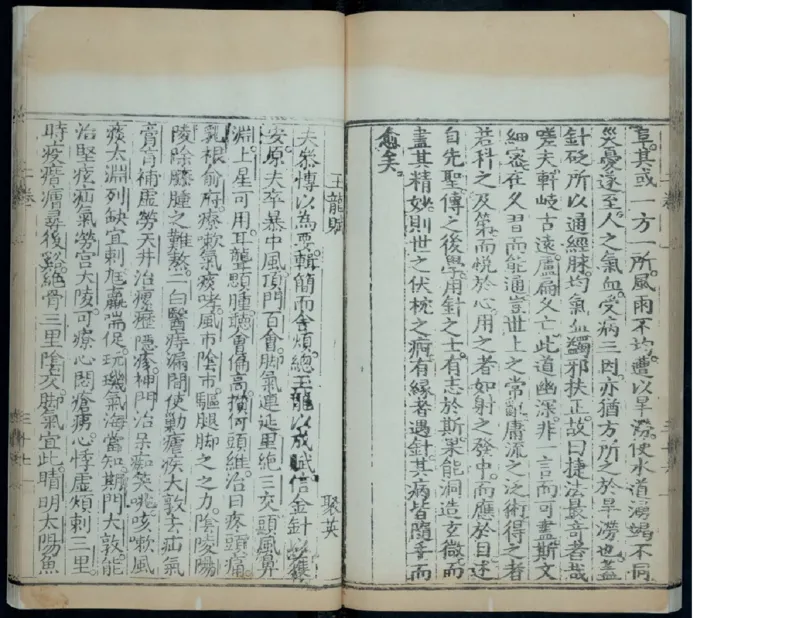 阜其或一方一所風雨不均遭以旱澇使水道湧竭不同
災憂遂至人之氣血受病三因亦猶方所之於旱澇也蓋
針砭所以通經脉均氣血蠲邪扶正故曰捷法最奇者哉
嗟夫軒岐古遠盧扁久亡此道幽深非一言而可盡斯文
細密在久習而能通豈世上之常辭庸流之泛術得之者
若科之及第而悅於心用之者如射之發中而應於目述
自先聖傳之後學用針之士有志於斯果能洞造玄微而
盡其精妙則世之伏枕之痾有緣者遇針其病皆隨手而
愈矣
玉龍賦 聚英
夫參博以為要輯簡而舍煩總玉龍以成賦信金針以獲
安原夫卒暴中風頂門百會脚氣連延里絕三交頭風鼻
淵上星可用耳聾顋腫聽會偏高攢竹頭維治目疼頭痛
乳根俞府療嗽氣痰哮風市陰市驅腿脚之之力陰陵陽
陵除膝腫之難熬二白醫痔漏間使勦瘧疾大敦去疝氣
膏肓補虛勞天井治瘰癧隱疹神門治呆痴笑咷咳嗽風
痰太淵列缺宜刺尫羸喘促璇璣氣海當知期門大敦能
治堅痃疝氣勞宮大陵可療心悶瘡痍心悸虛煩刺三里
時疫痎瘧尋後谿絕骨三里陰交脚氣宜此睛明太陽魚